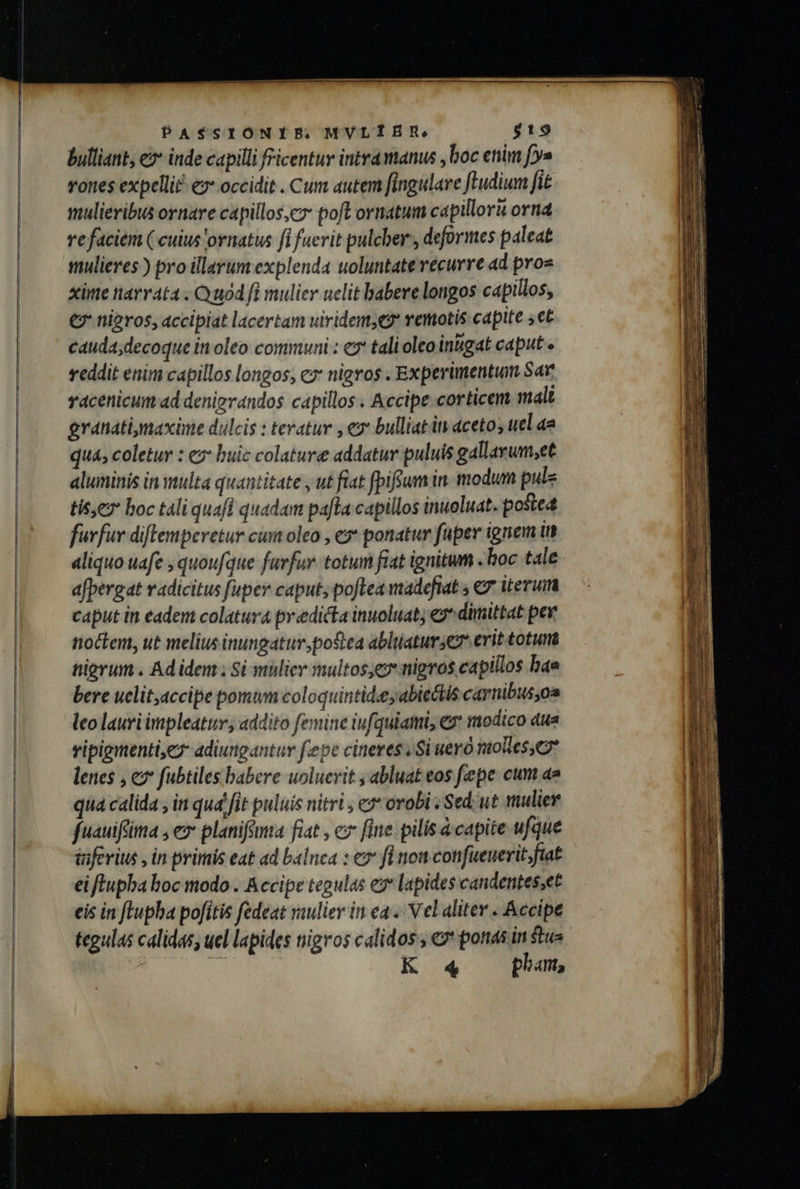 PASSIONIB. MVLIER. 519
bulliant, & inde capilli fricentur intra manus, hoc enim ſy-
rones expellit & occidit. Cum autem ſingulare ſtudium ſit
mulieribus ornare capillos, & poſt ornatum capillorũ orna
re faciem (cuius ornatus ſi fuerit pulcher, deformes paleat
mulieres) pro illarum explenda uoluntate recurre ad pro-
xime narrata. Quòd ſi mulier uelit habere longos capillos,
& nigros, accipiat lacertam uiridem, & remotis capite, et
cauda, decoque in oleo communi: & tali oleo inũgat caput.
reddit enim capillos longos, & nigros. Experimentum Sar
racenicum ad denigrandos capillos. Accipe corticem mali
granati, maxime dulcis: teratur, & bulliat in aceto, uel a-
qua, coletur: & huic colaturæ addatur puluis gallarum, et
aluminis in multa quantitate, ut fiat ſpiſſum in modum pul-
tis, & hoc tali quaſi quadam paſta capillos inuoluat. postea
furfur diſtemperetur cum oleo, & ponatur ſuper ignem in
aliquo uaſe, quouſque furfur totum fiat ignitum. hoc tale
aſpergat radicitus ſuper caput, poſtea madefiat, & iterum
caput in eadem colatura prædicta inuoluat, & dimittat per
noctem, ut melius inungatur, postea abluatur, & erit totum
nigrum. Ad idem. Si mulier multos, & nigros capillos ha-
bere uelit, accipe pomum coloquintidæ, abiectis carnibus, o-
leo lauri impleatur, addito ſemine iuſquiami, & modico au-
ripigmenti, & adiungantur ſæpe cineres. Si uerò molles, &
lenes, & ſubtiles habere uoluerit, abluat eos ſæpe cum a-
qua calida, in qua ſit puluis nitri, & orobi. Sed ut mulier
ſuauiſsima, & planiſsima fiat, & ſine pilis à capite uſque
inferius, in primis eat ad balnea: & ſi non conſueuerit, fiat
ei ſtupha hoc modo. Accipe tegulas & lapides candentes, et
eis in ſtupha poſitis ſedeat mulier in ea. Vel aliter. Accipe
tegulas calidas, uel lapides nigros calidos, & ponas in ſtu-
K 4 pham,